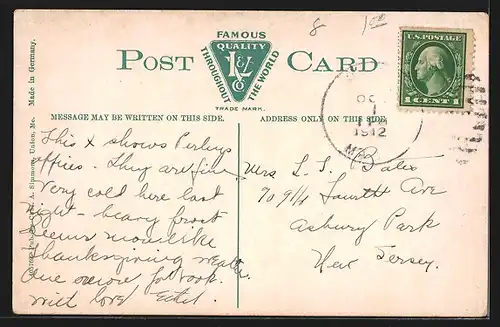 8
1.00
FAMOUS
QUALITY
THROUGHOUT
THE WORLD
TRADE MARK.
POST CARD
U.S. POSTAGE
1 CENT 1
1
1912
MESSAGE MAY BE WRITTEN ON THIS SIDE.
ADDRESS ONLY ON THIS SIDE
Made in Germany.
A. Simmons, Union, Me.
This x shows Perleys
offices. They are fine
Very cold here last
night - heavy frost
Seems more like
Thanksgiving weather.
One more for book.
with love Ethel.
Mrs L. S. Bates
Fourth Ave
Asbury Park
New Jersey.